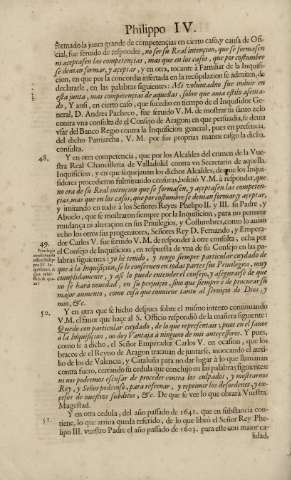 Philippo IV.
formado la junta grande de competencias en cierto caso, y causa de Oficial, fue servido de responder, no ser su Real intencion, que se formassen
ni aceptassen las competencias, mas que en los casos, que por costumbre
se devian formar, y aceptar, y en otra, tocante à Familiar de la Inquisicion, en que por la concordia inserta en la recopilacion se admiten, de
declararse, en las palabras siguientes: Mi voluntad no fue incluir en
esta junta, mas competencias de aquellas, sobre que antes estava assentado,
Y assi, en cierto caso, que sucediò en tiempo de el Inquisidor General, D. Andrea Pacheco, fue servido V. M. de mostrar su santo zelo
contra una consulta de el Consejo de Aragon, en que persuadia, se devia
usar del Banco Regio contra la Inquisicion general, pues en presencia,
del dicho Patriarcha, V. M. por sus proprias manos rasgò la dicha
consulta.
48. Y en otra competencia, que por los Alcaldes del crimen de la Vuestra Real Chancilleria de Valladolid contra un Secretario de aquella
Inquisicion, y en que se quejaron los dichos Alcaldes, de que los Inquisidores procedieron
no era de su Real intencion que se formassen, y aceptassen las competencias, mas que en los casos, que por costumbre se devian formar, y aceptar,
y imitando en todo à los Señores Reyes Phelipo II. y III. su Padre, y
Abuelo, que se mostraron siempre por la Inquisicion, para no permitir
mudança ni alteracion en sus Privilegios, y Costumbres, como lo avian
echo los otros sus progenitores, Señores Rey D. Fernando, y Emperador Carlos V. fue servido V. M. de responder à otra consulta, echa por
49. el Consejo de Inquisicion, en respuesta de una de su Consejo en las palabras siguientes: yo he tenido, y tengo siempre particular cuydado de
que à la Inquisicion, se le conserven en todas partes sus Privilegios, muy
cumplidamente, y assi lo puede entender el consejo, y assegurarse de que
no se hara novedad, en su perjuicio, sino que siempre se procurarà su
mayor aumento, como cosa que conviene tanto al servicio de Dios, y
mio, &c.
50. Y en otra que se hizo despues sobre el mismo intento continuando
V. M. el favor que hace al S. Officio respondiò de la manera siguiente:
Quedo con particular cuydado, de lo que representais; pues en el favor
à la Inquisicion, no doy Ventaja à ninguno de mis antecessores. Y pues,
como se à dicho, el Señor Emperador Carlos V. en ocasion, que los
braços de el Reyno de Aragon tratavan de juntarse, invocando el auxilio de los de Valencia, y Cataluña para no dar lugar à lo que llamavan
contra fuero, cerrando su cedula que concluyò en las palabras siguientes:
ni nos podremos escusar de proceder contra los culpados, y mostrarnos
Rey, y Señor poderoso, para reformar, y reprimir los desordenes, y excessos de nuestros subditos, &c. De que se vee lo que obrarà Vuestra
Magestad.
51. Y en otra cedula, del año passado de 1642. que en substancia contiene, lo que arriva queda referido, de lo que librò el Señor Rey Phelipo III. vuestro Padre el año passado de 1603. para este con mayor calidad,